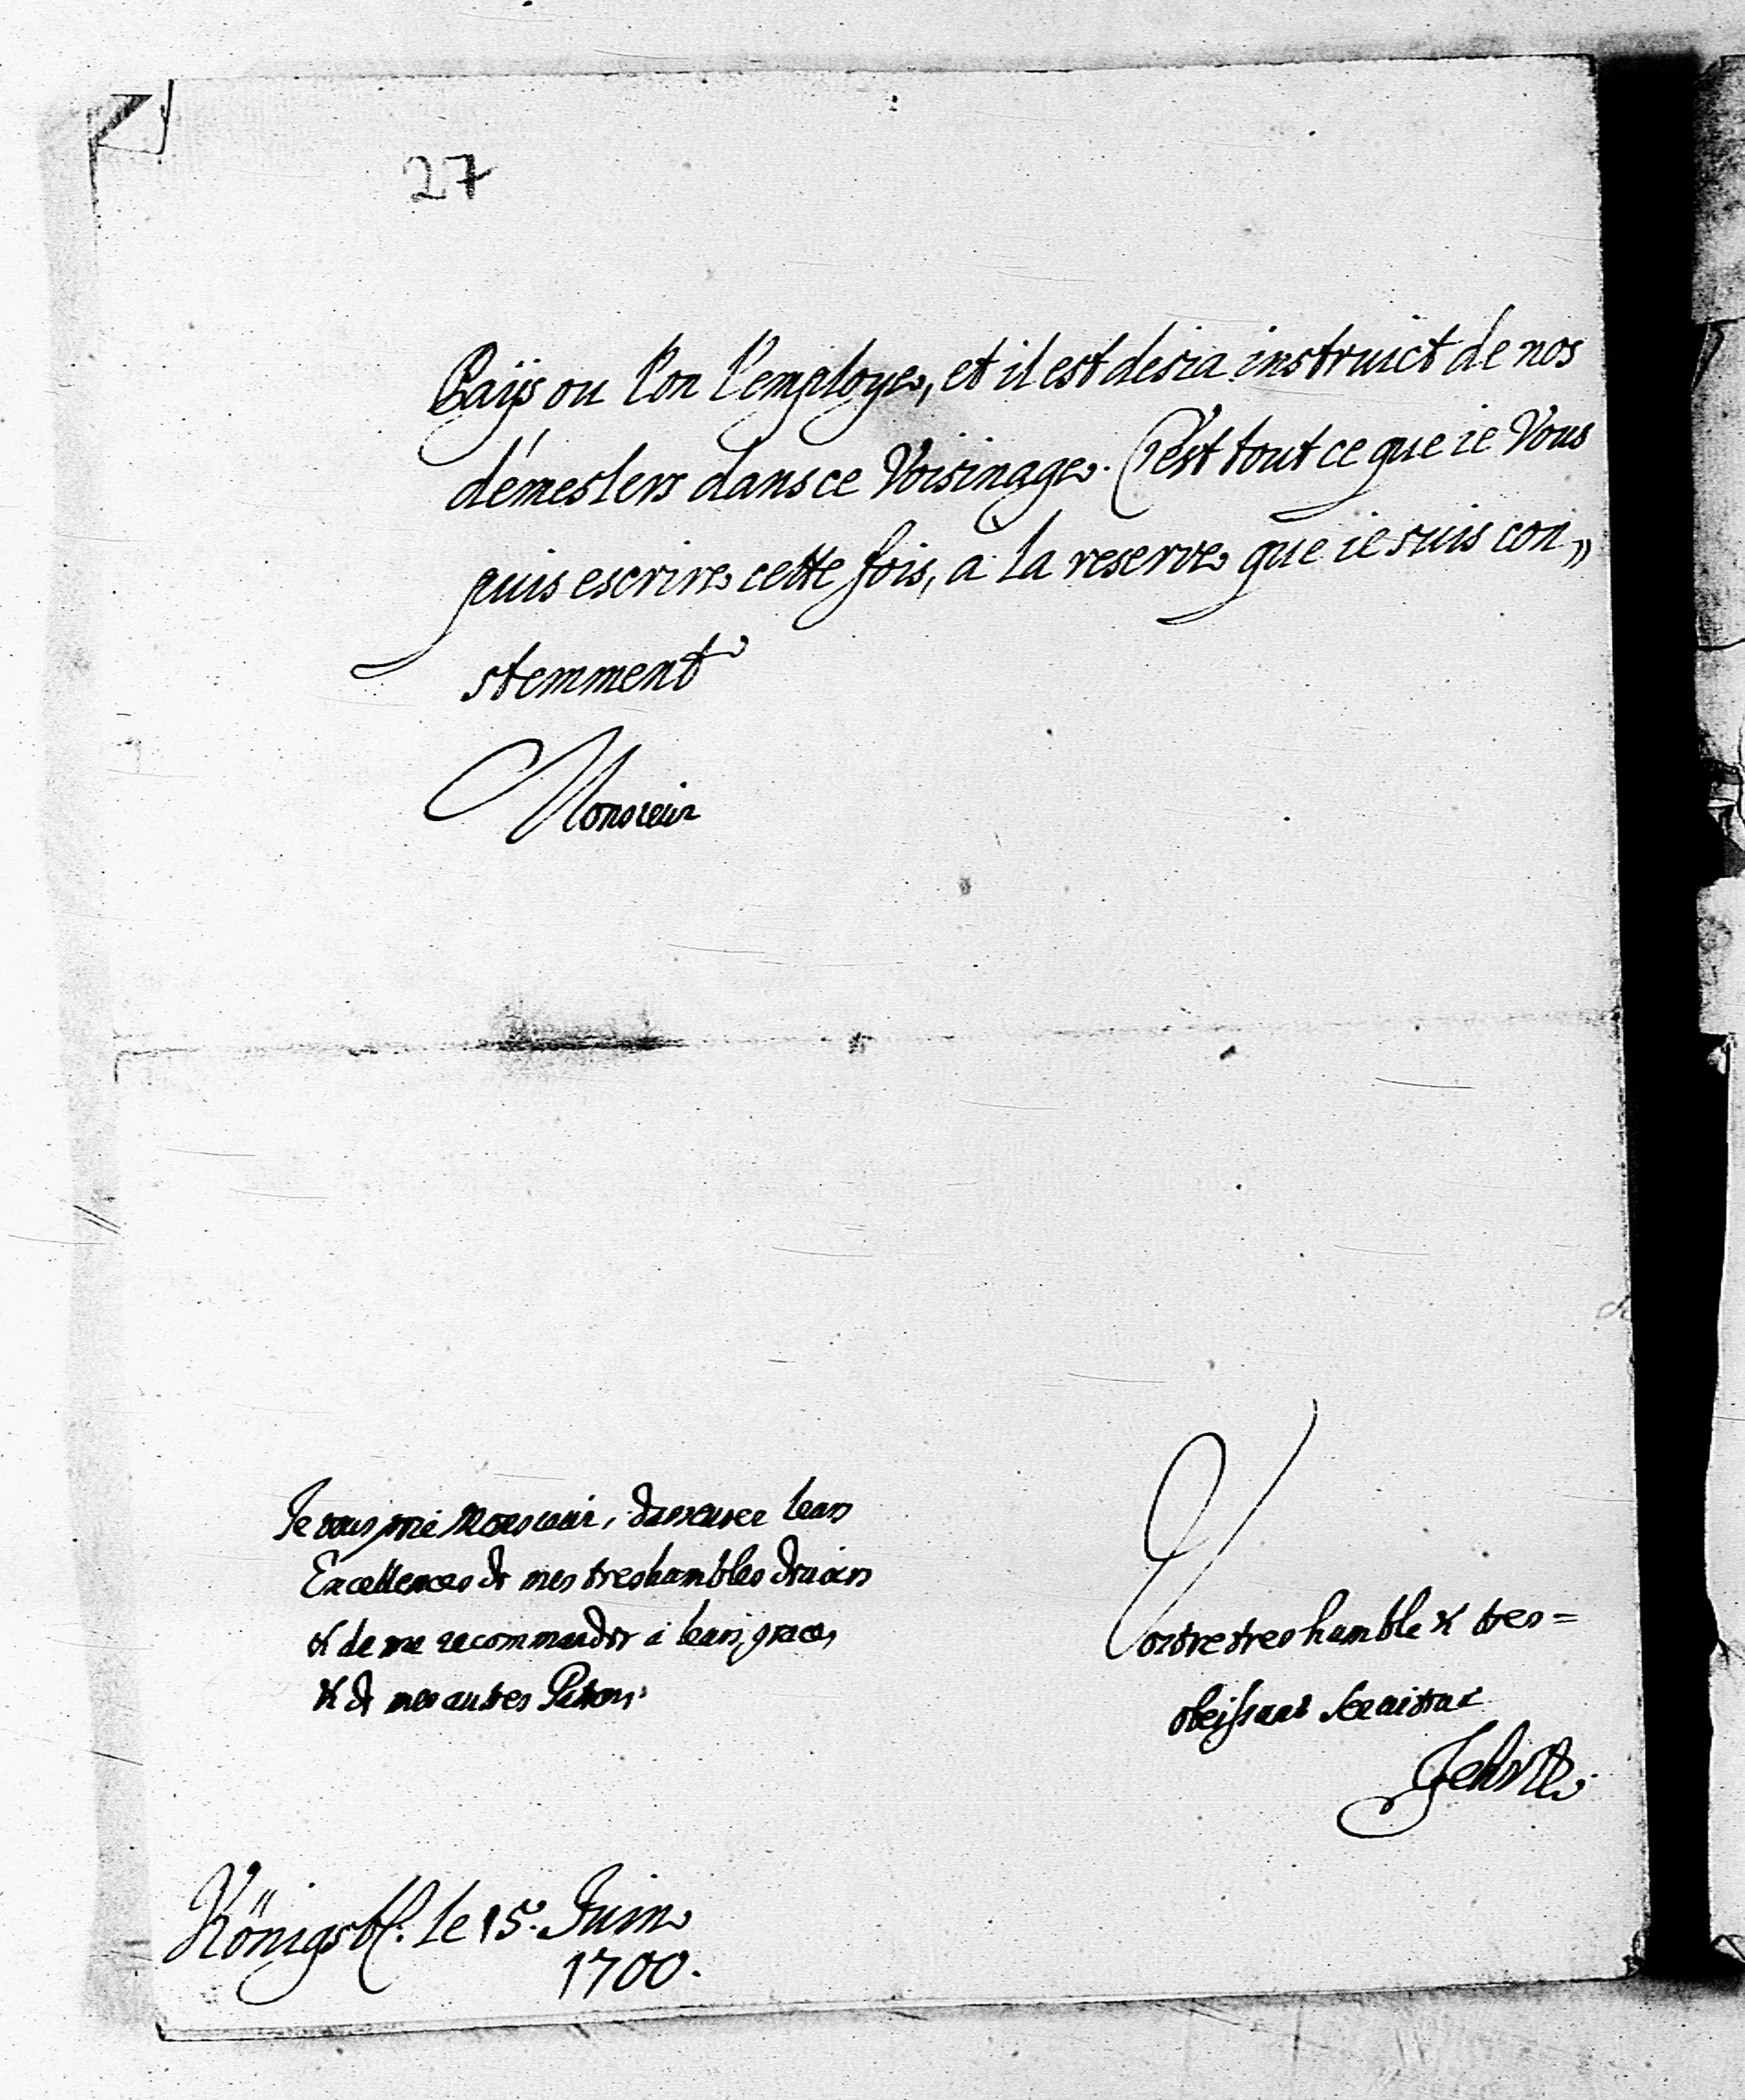 27
Païs ou l'on l'employe, et il est desia instruict de nos
démeslers dans ce Voisinage. C'est tout ce que ie Vous
puis escrire cette fois, a la reserve que ie suis con„
stemment
Monsieur
Je vous prie Monsieur, d'asseurer leurs
Excellences de mes treshumbles devoirs
& de me recommander à leurs graces
& de mes autres Patrons.
Vostre tres humble & tres=
obeissant serviteur
Königsb. le 15. Juin
1700.